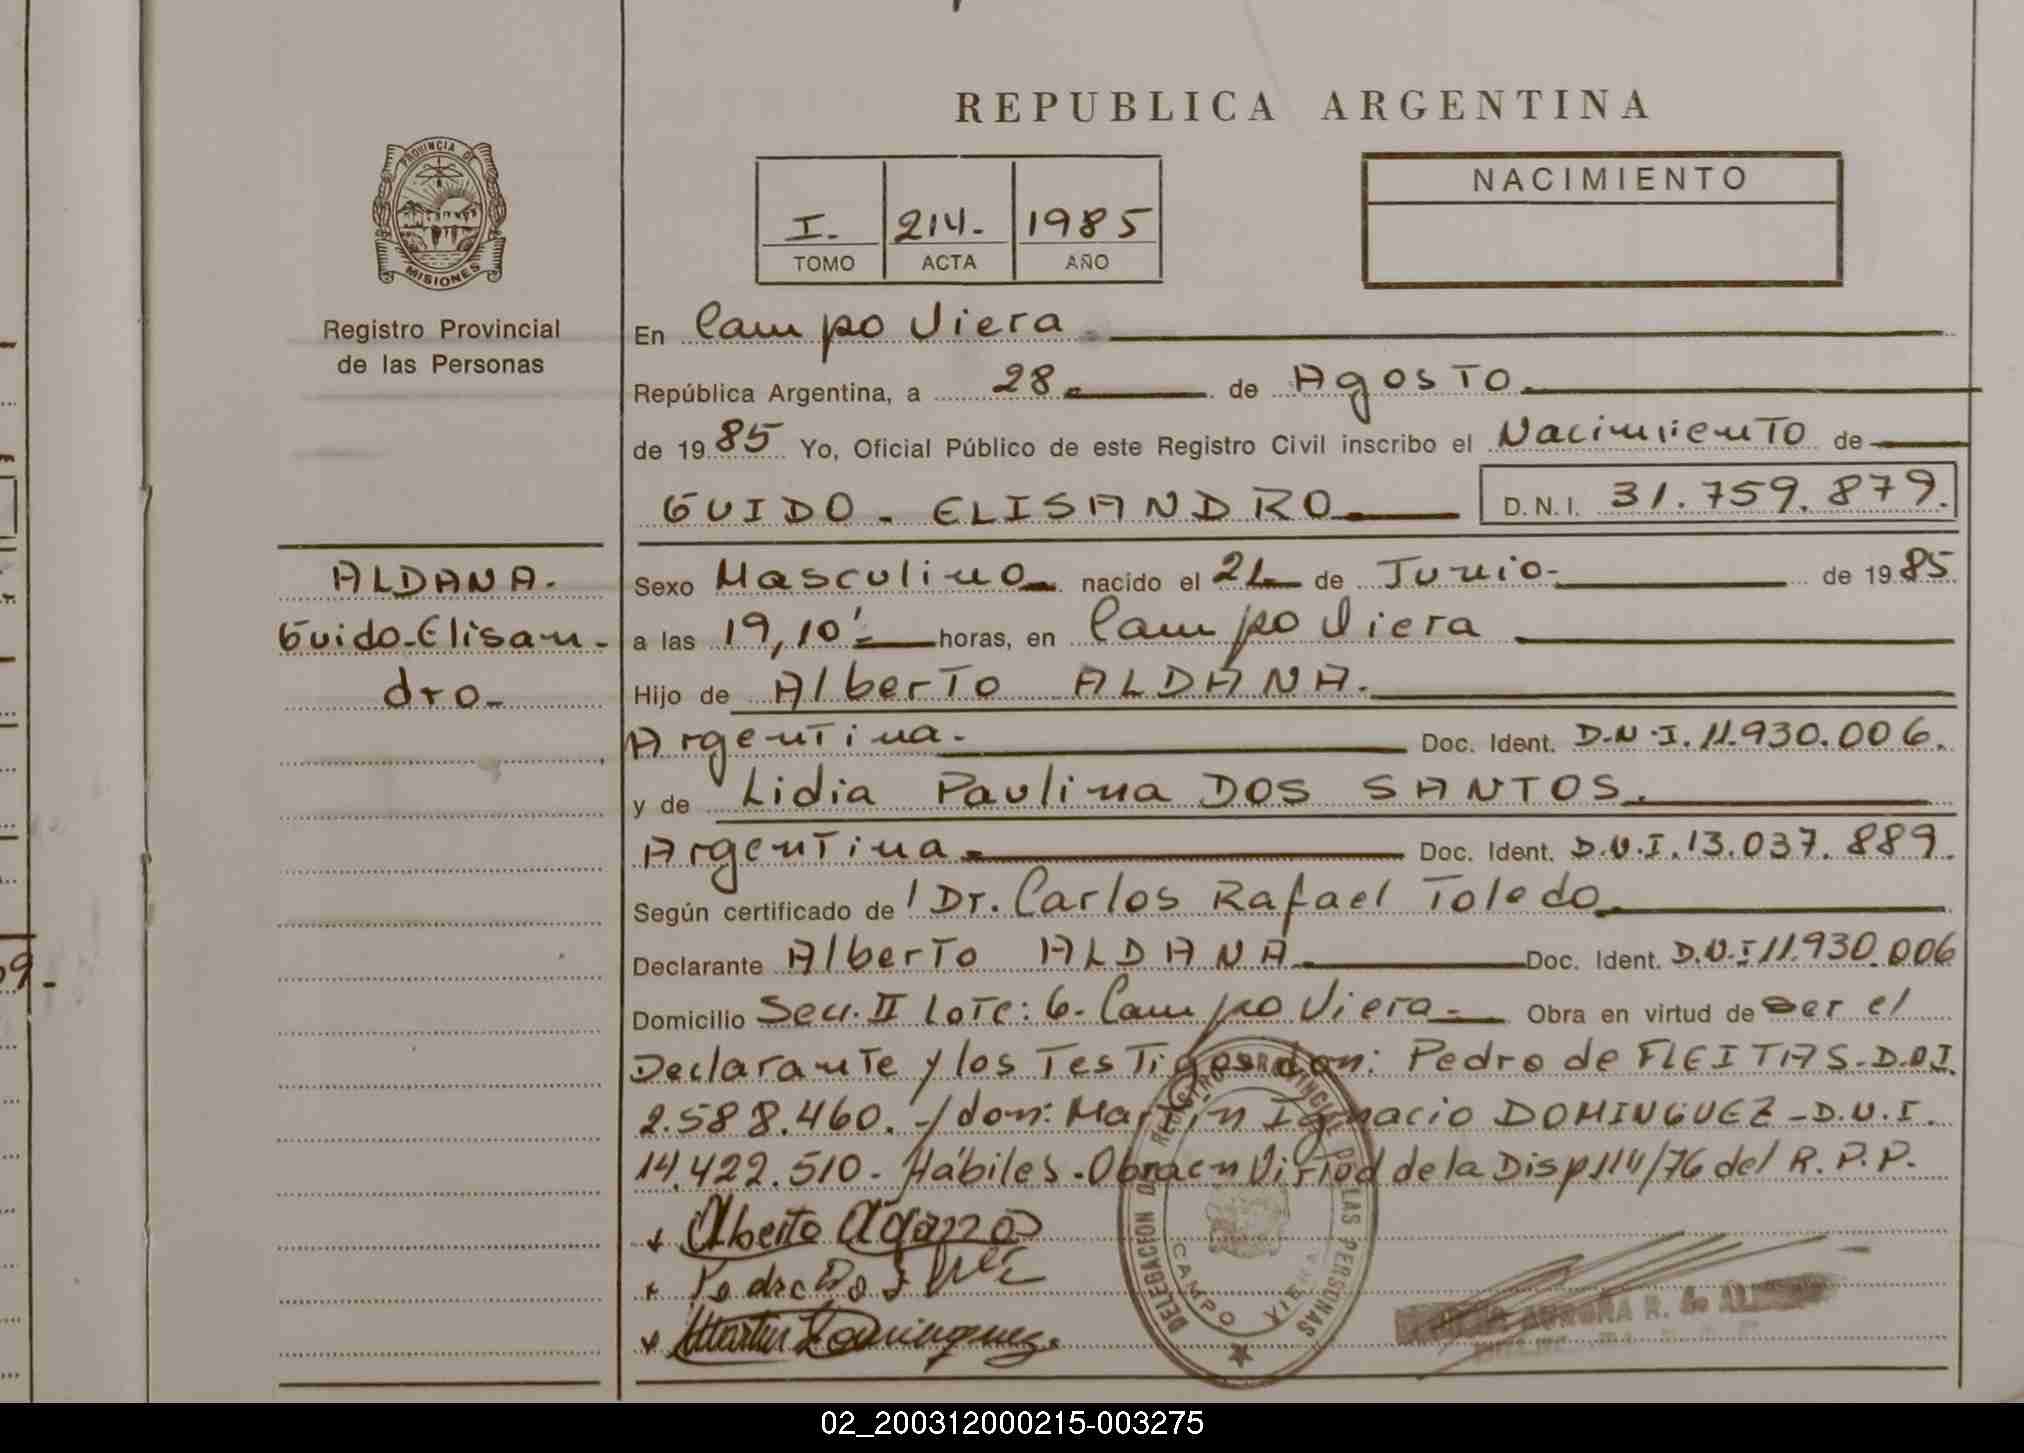 REPUBLICA ARGENTINA
PROVINCIA DE
MISIONES
Registro Provincial
de las Personas
I. 214. 1985
TOMO ACTA AÑO
NACIMIENTO
En Campo Viera
República Argentina, a 28 de Agosto
de 1985 Yo, Oficial Público de este Registro Civil inscribo el Nacimiento de
GUIDO - ELISANDRO D.N.I. 31.759.879.
ALDANA.
Guido-Elisan-
dro-
Sexo Masculino nacido el de Junio- de 1985
a las 19,10' horas, en Campo Viera
Hijo de Alberto ALDANA.
Argentina. Doc. Ident. D.N.I. 11.930.006.
y de Lidia Paulina DOS SANTOS.
Argentina Doc. Ident. D.N.I. 13.037.889.
Según certificado de Dr. Carlos Rafael Toledo
Declarante Alberto ALDANA Doc. Ident. D.N.I 11.930.006
Domicilio Secc. II Lote: 6. Campo Viera Obra en virtud de ser el
Declarante y los Testigos don: Pedro de FLEITAS-D.N.I.
2.588.460.-/don: Martín Ignacio DOMINGUEZ-D.N.I.
14.422.510- Hábiles.-Obra en Virtud de la Disp 114/76 del R.P.P.
Alberto
Pedro
Martin Dominguez
DELEGACION DE REGISTRO PROVINCIAL DE LAS PERSONAS
CAMPO VIERA
AURORA R. de
9.
02_200312000215-003275